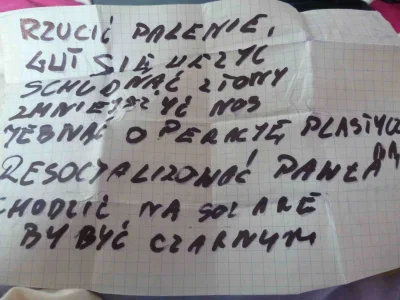 RZUCIĆ PALENIE,
GUT SIĘ UCZYC
SCHUDNĄĆ 2 TONY
ZMNIEJSZYĆ NOS
JEBNĄĆ OPERACJĘ PLASTYCZ
NĄ
RESOCJALIZOWAĆ PAWŁA
CHODZIĆ NA SOLARE
BY BYĆ CZARNYM